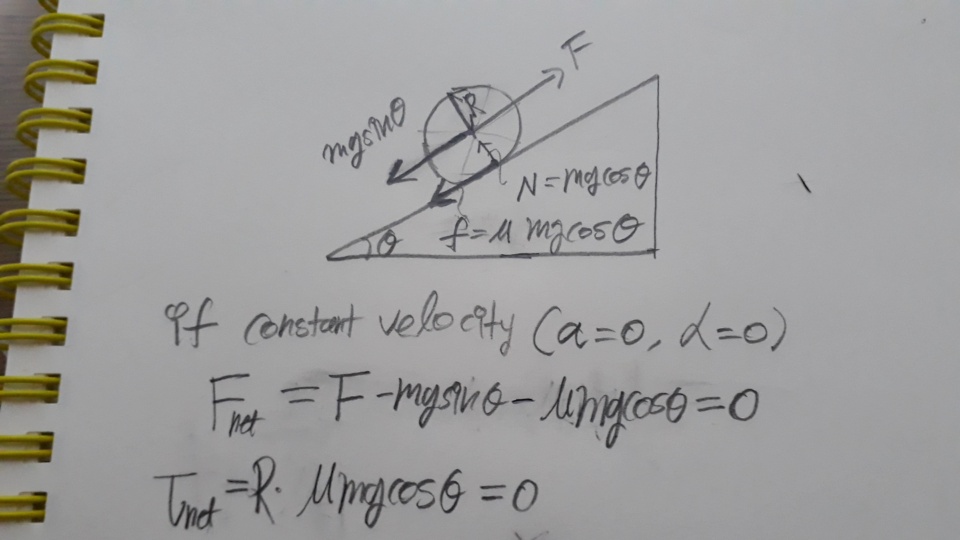 F
R
mgsinθ
N=mgcosθ
f=μ mgcosθ
θ
if constant velocity (a=0, α=0)
Fnet = F-mgsinθ-μmgcosθ=0
τnet=R. μmgcosθ=0